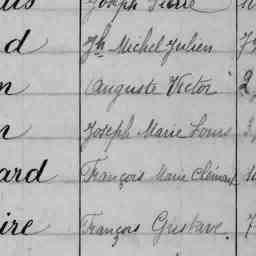 us Joseph Pierre
d Jh Michel Julien 7
n Auguste Victor 2
n Joseph Marie Louis
ard François Marie Clément
ire François Gustave. 7